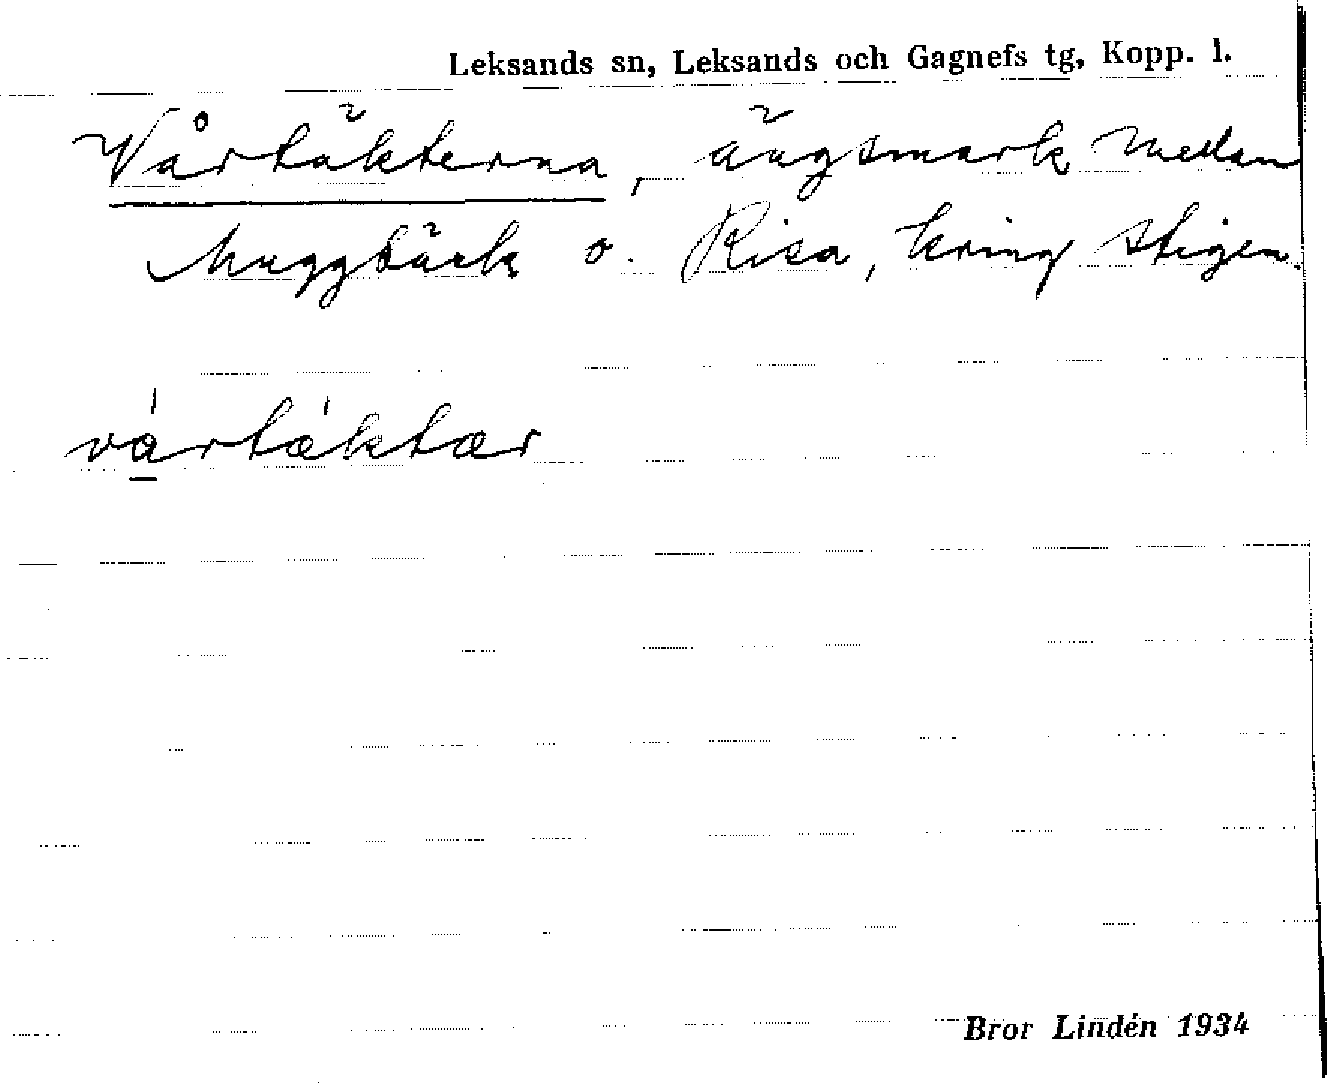 Leksands sn, Leksands och Gagnefs tg, Kopp. l.
Vårtäkterna, ängsmark mellan
Muggbäck o. Risa, kring stigen.
vàrtæ̀ktær
Bror Lindén 1934